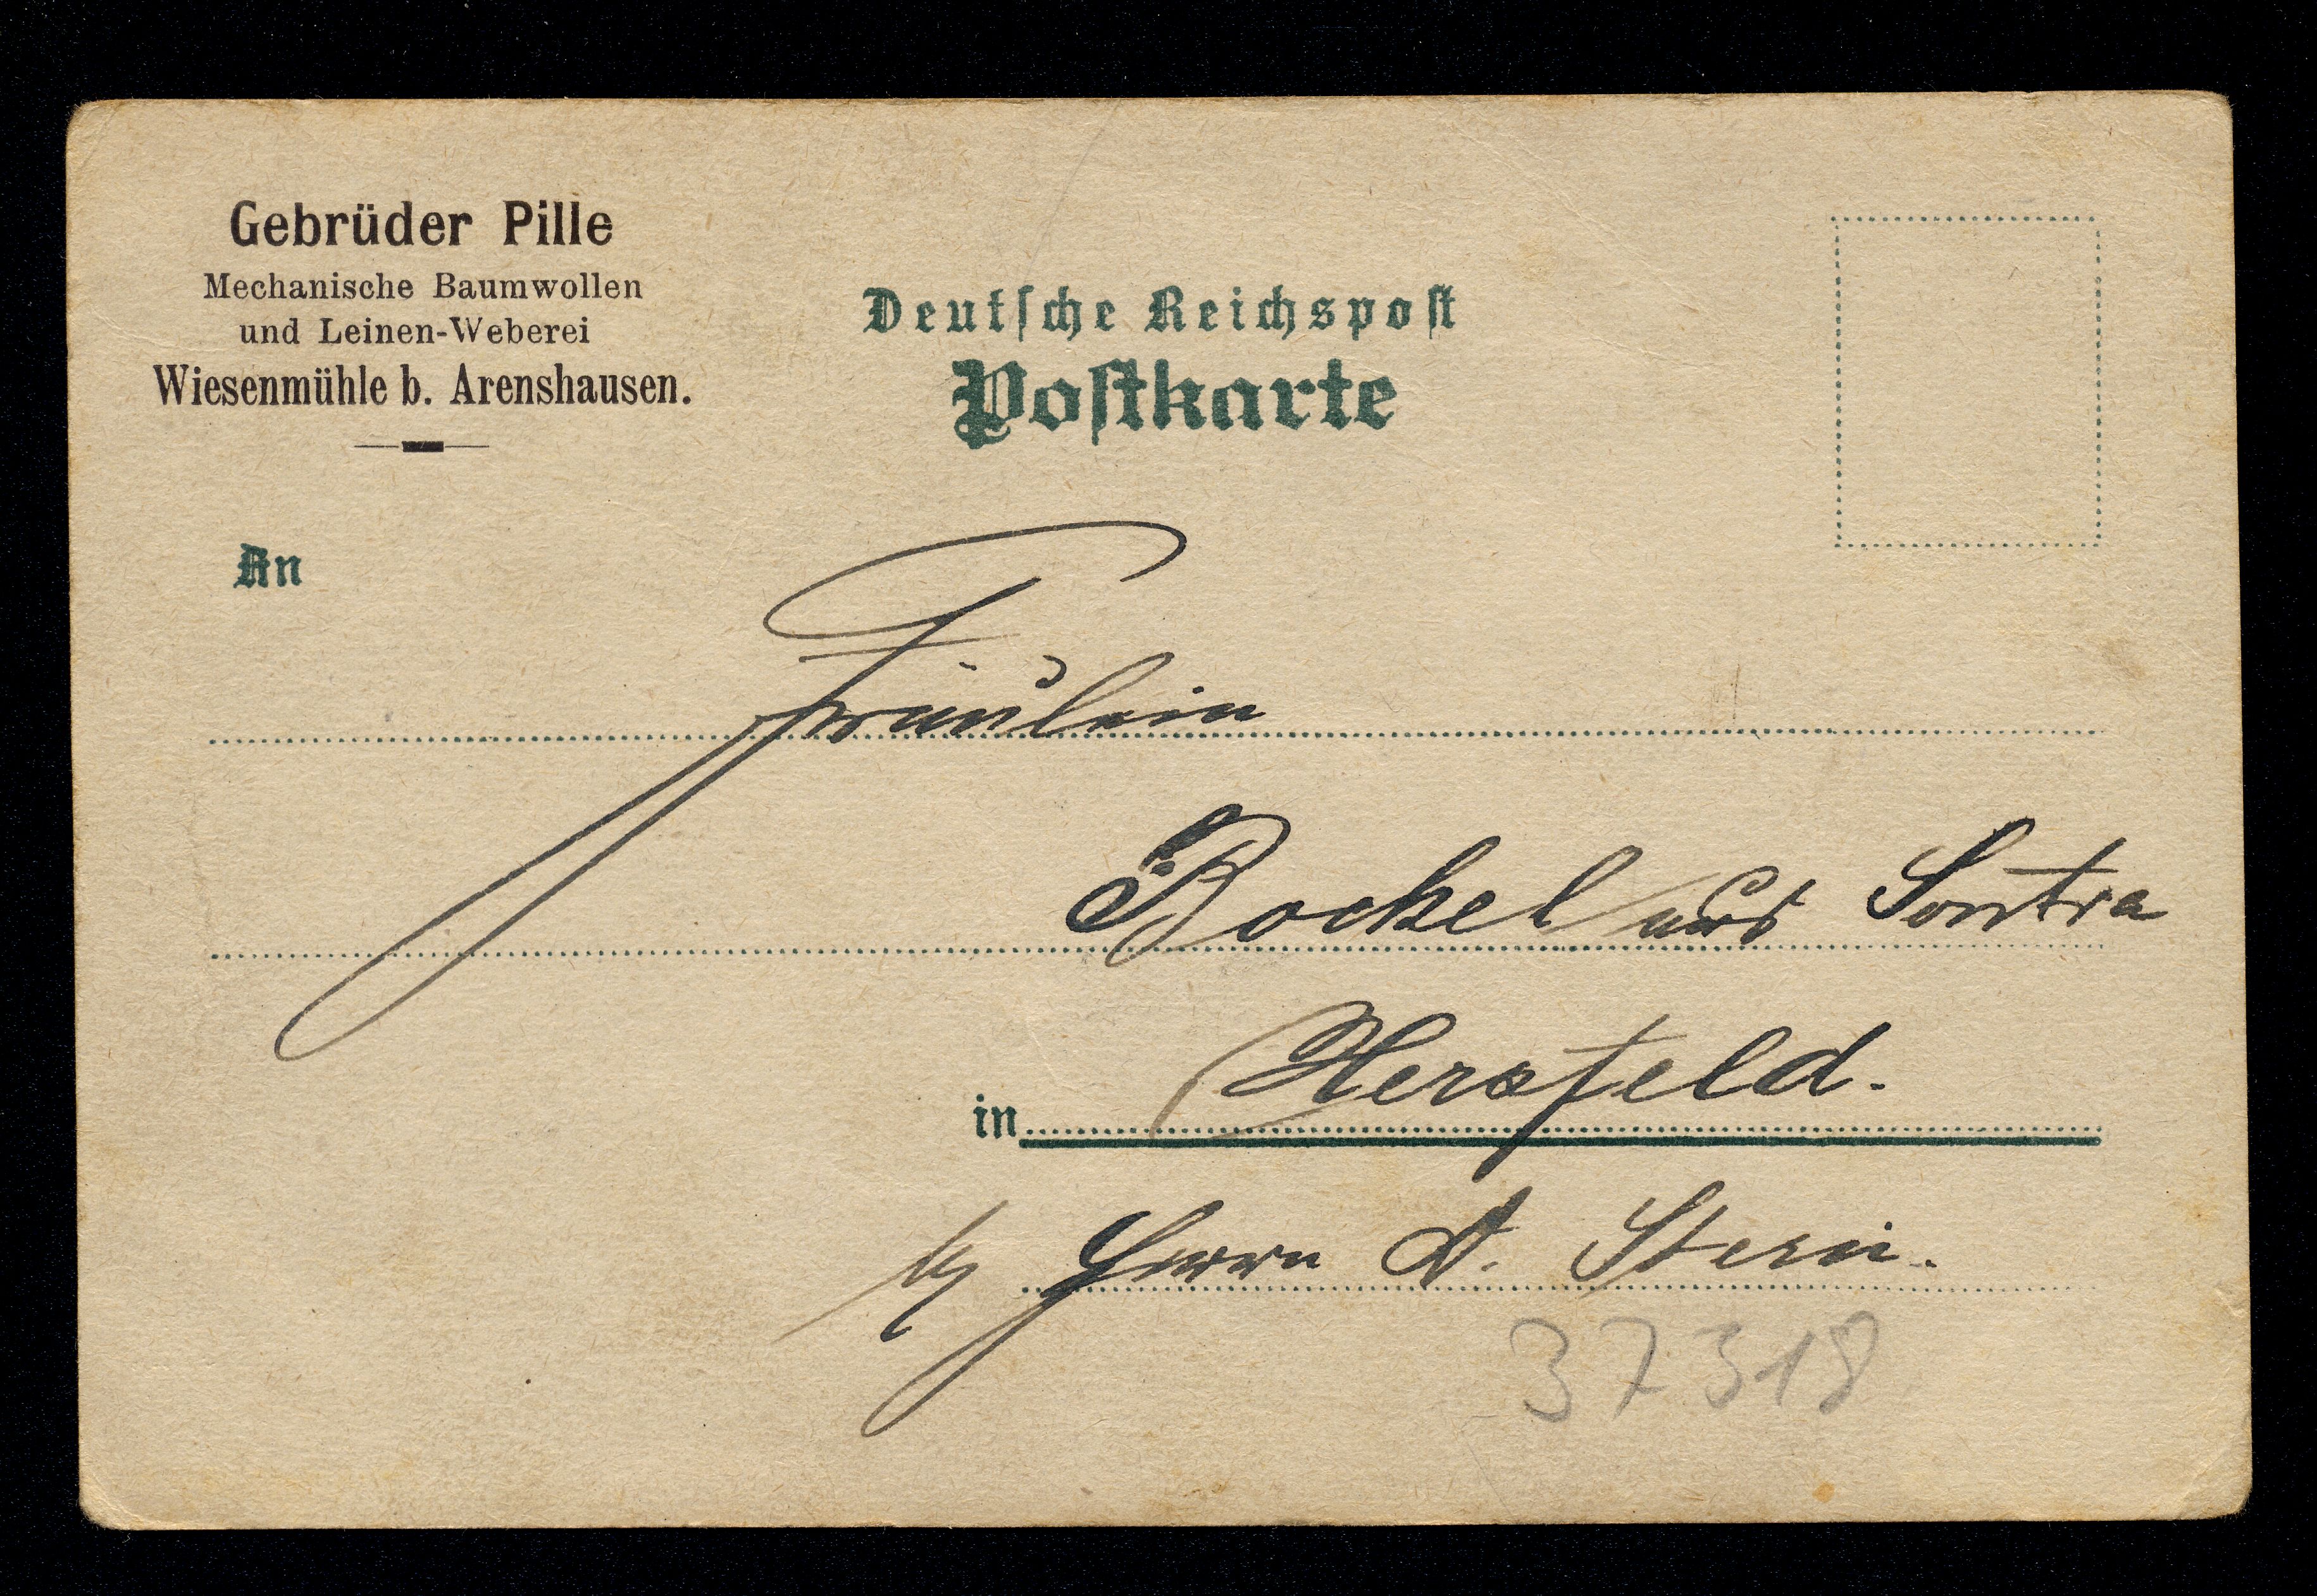 Gebrüder Pille
Mechanische Baumwollen
und Leinen-Weberei
Wiesenmühle b. Arenshausen.
Deutsche Reichspost
Postkarte
An
Fräulein
Rockel aus Sontra
in Hersfeld.
Herrn A. Stern.
37318